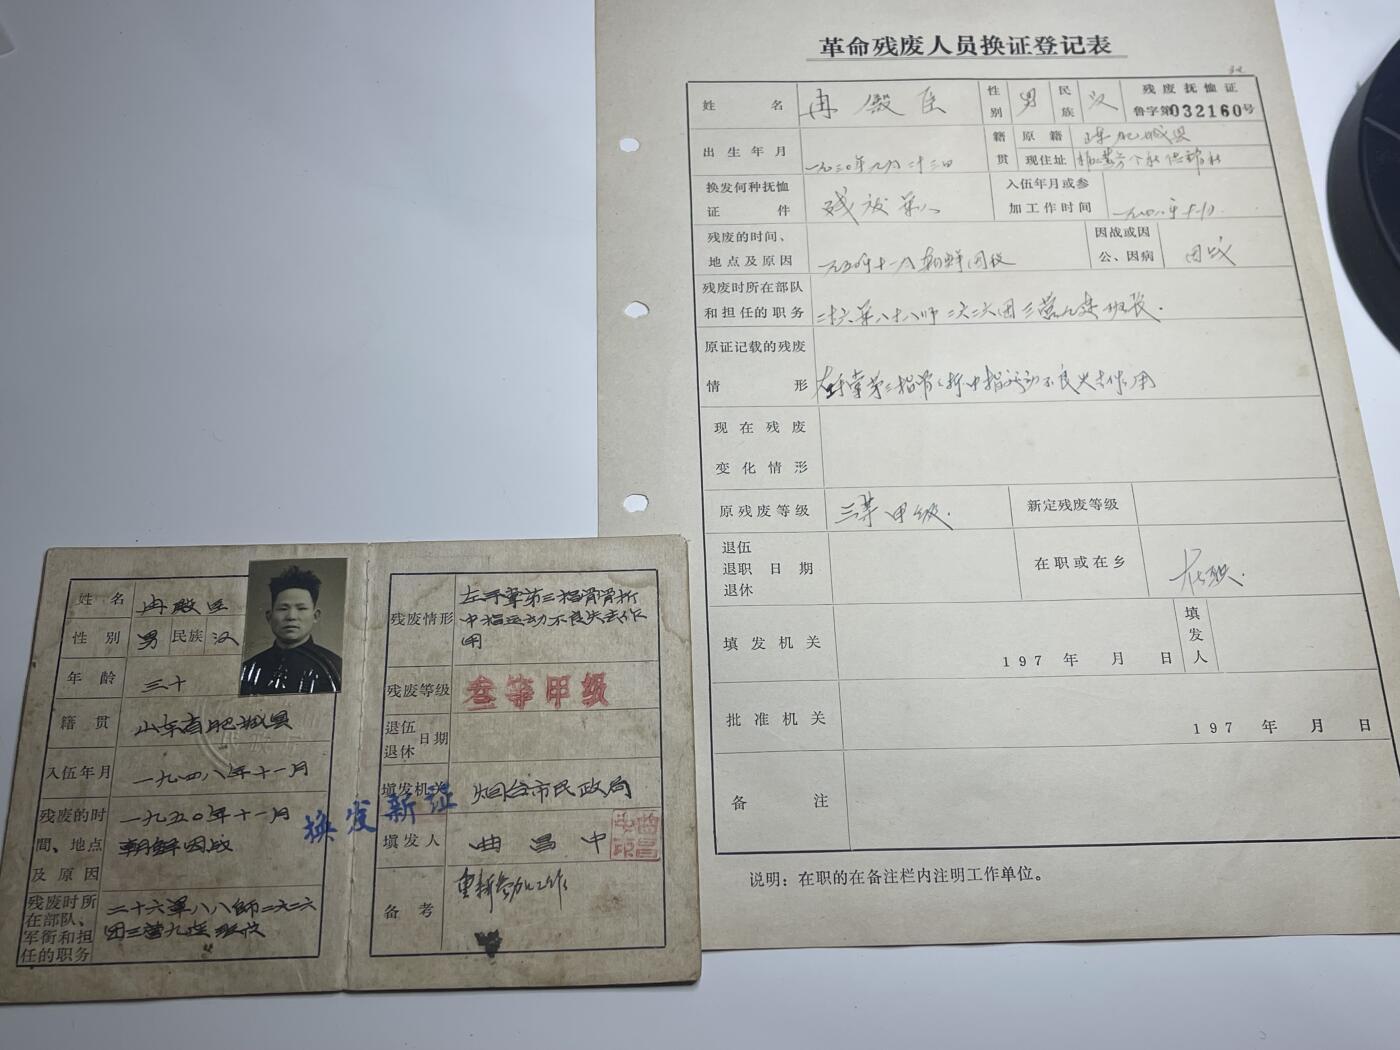 革命残废人员换证登记表
姓名 冉殿臣 性别 男 民族 汉 残废抚恤证 鲁字第032160号
出生年月 一九三〇年九月二十三日 籍贯 原籍 山东肥城县
现住址
换发何种抚恤证件 残废军人 入伍年月或参加工作时间 一九四八年十一月
残废的时间、地点及原因 一九五〇年十一月朝鲜因战 因战或因公、因病 因战
残废时所在部队和担任的职务 二十六军八十八师二六二团三营九连班长.
原证记载的残废情形 左手掌第三指骨骨折中指运动不良失去作用
现在残废变化情形
原残废等级 三等甲级. 新定残废等级
退伍
退职 日期
退休
在职或在乡 在职.
填发机关 197 年 月 日 填发人
批准机关 197 年 月 日
备注
说明：在职的在备注栏内注明工作单位。
姓名 冉殿臣
性别 男 民族 汉
年龄 三十
籍贯 山东省肥城县
入伍年月 一九四八年十一月
残废的时 一九五〇年十一月
間、地点 朝鲜因战
及原因
残废时所 二十六军八八师二六二六
在部队、 团三营九连班长
军衔和担
任的职务
残废情形 左手掌第三指骨骨折
中指运动不良失去作
用
残废等级 叁等甲级
退伍
退休
日期
填发机关 烟台市民政局
换发新证
填发人 曲昌中
曲昌中印
备考 重新参加工作